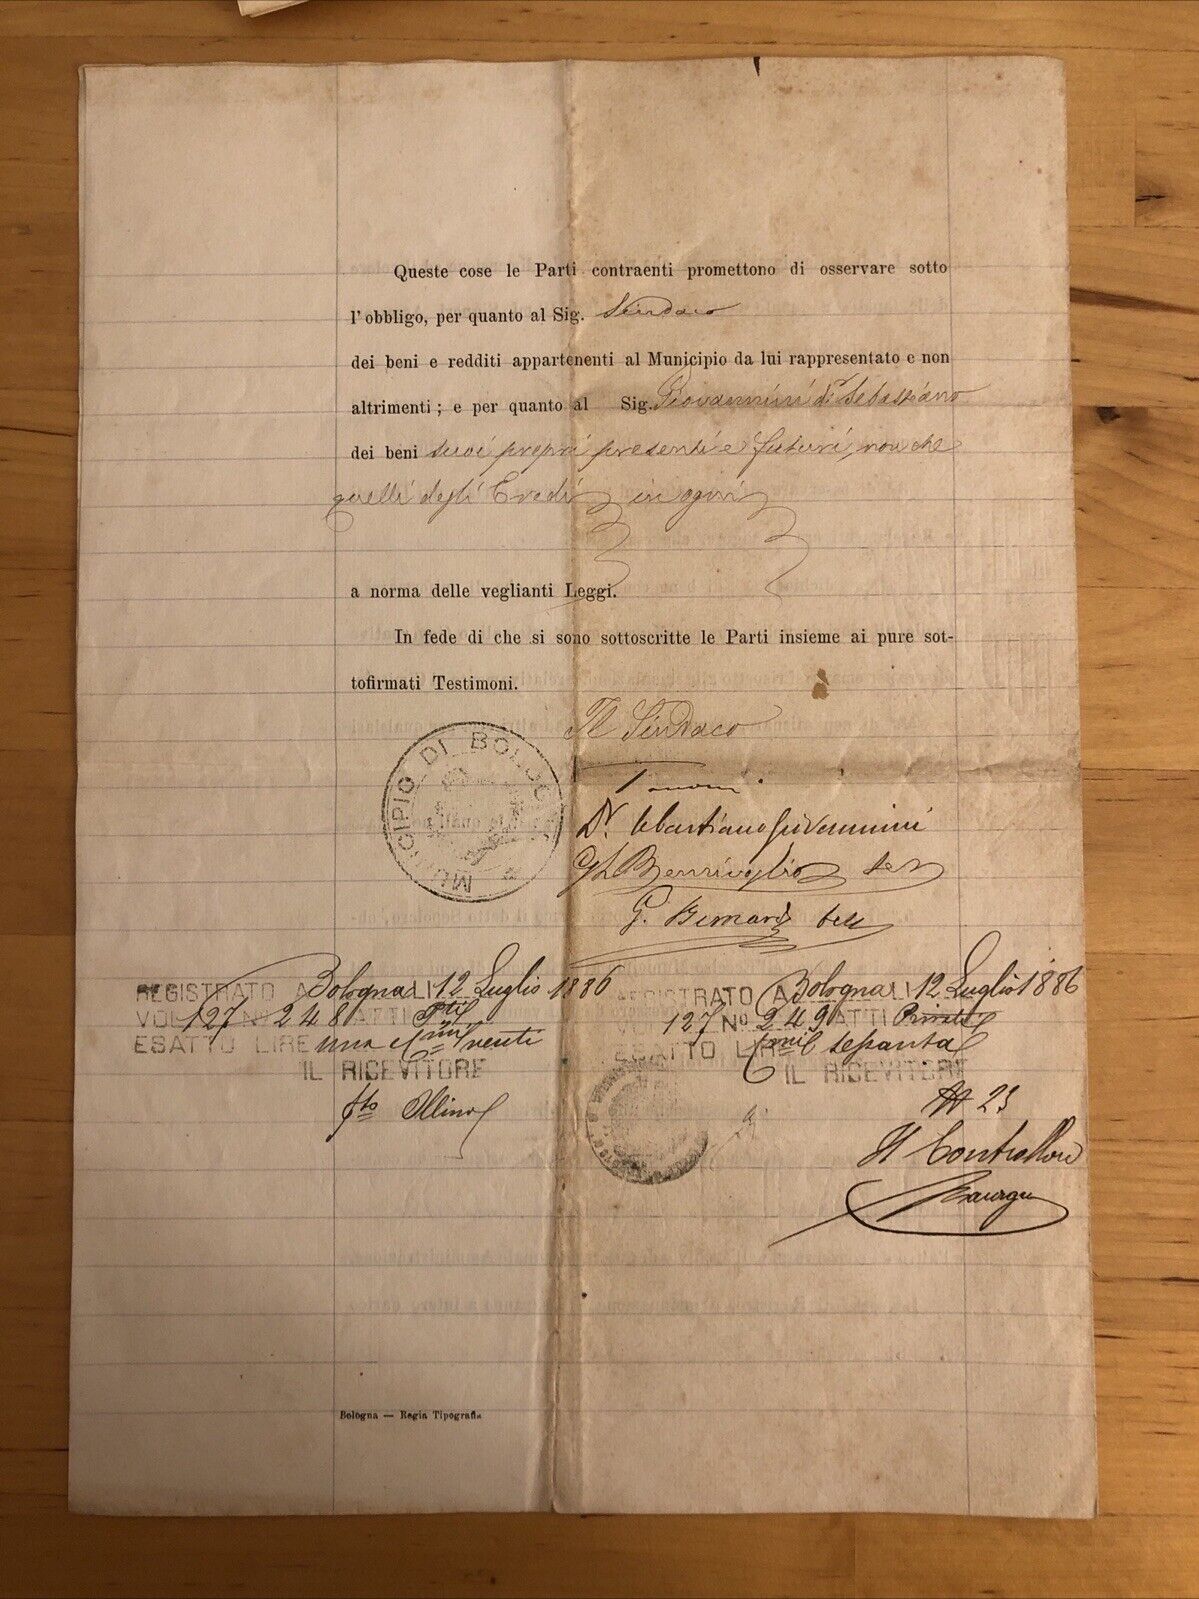 Queste cose le Parti contraenti promettono di osservare sotto
l'obbligo, per quanto al Sig. Sindaco
dei beni e redditi appartenenti al Municipio da lui rappresentato e non
altrimenti ; e per quanto al Sig. Giovannini Dr Sebastiano
dei beni suoi propri presenti e futuri, non che
quelli degli Eredi in ogni
a norma delle veglianti Leggi.
In fede di che si sono sottoscritte le Parti insieme ai pure sot-
tofirmati Testimoni.
Il Sindaco
MUNICIPIO DI BOLOGNA
Dr. Sebastiano Giovannini
Bentivoglio tes
G. Bernardi test
REGISTRATO A Bologna LI 12 Luglio 1886
127 No 248 ATTI Pti
ESATTO LIRE una Cmi venti
IL RICEVITORE
fto
REGISTRATO A Bologna LI 12 Luglio 1886
127 No 249 ATTI Privati
ESATTO LIRE Cmi sessanta
IL RICEVITORE
23
Il Controllore
Bologna — Regia Tipografia